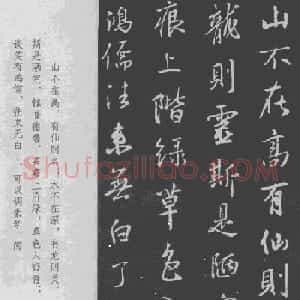 山不在高有仙則
龍則靈斯是陋
痕上階緑草色
鴻儒往来無白丁
山不在高，有仙则名。水不在深，有龙则灵。
斯是陋室，惟吾德馨。苔痕上阶绿，草色入帘青。
谈笑有鸿儒，往来无白丁。可以调素琴，阅
Shufaziliao.com